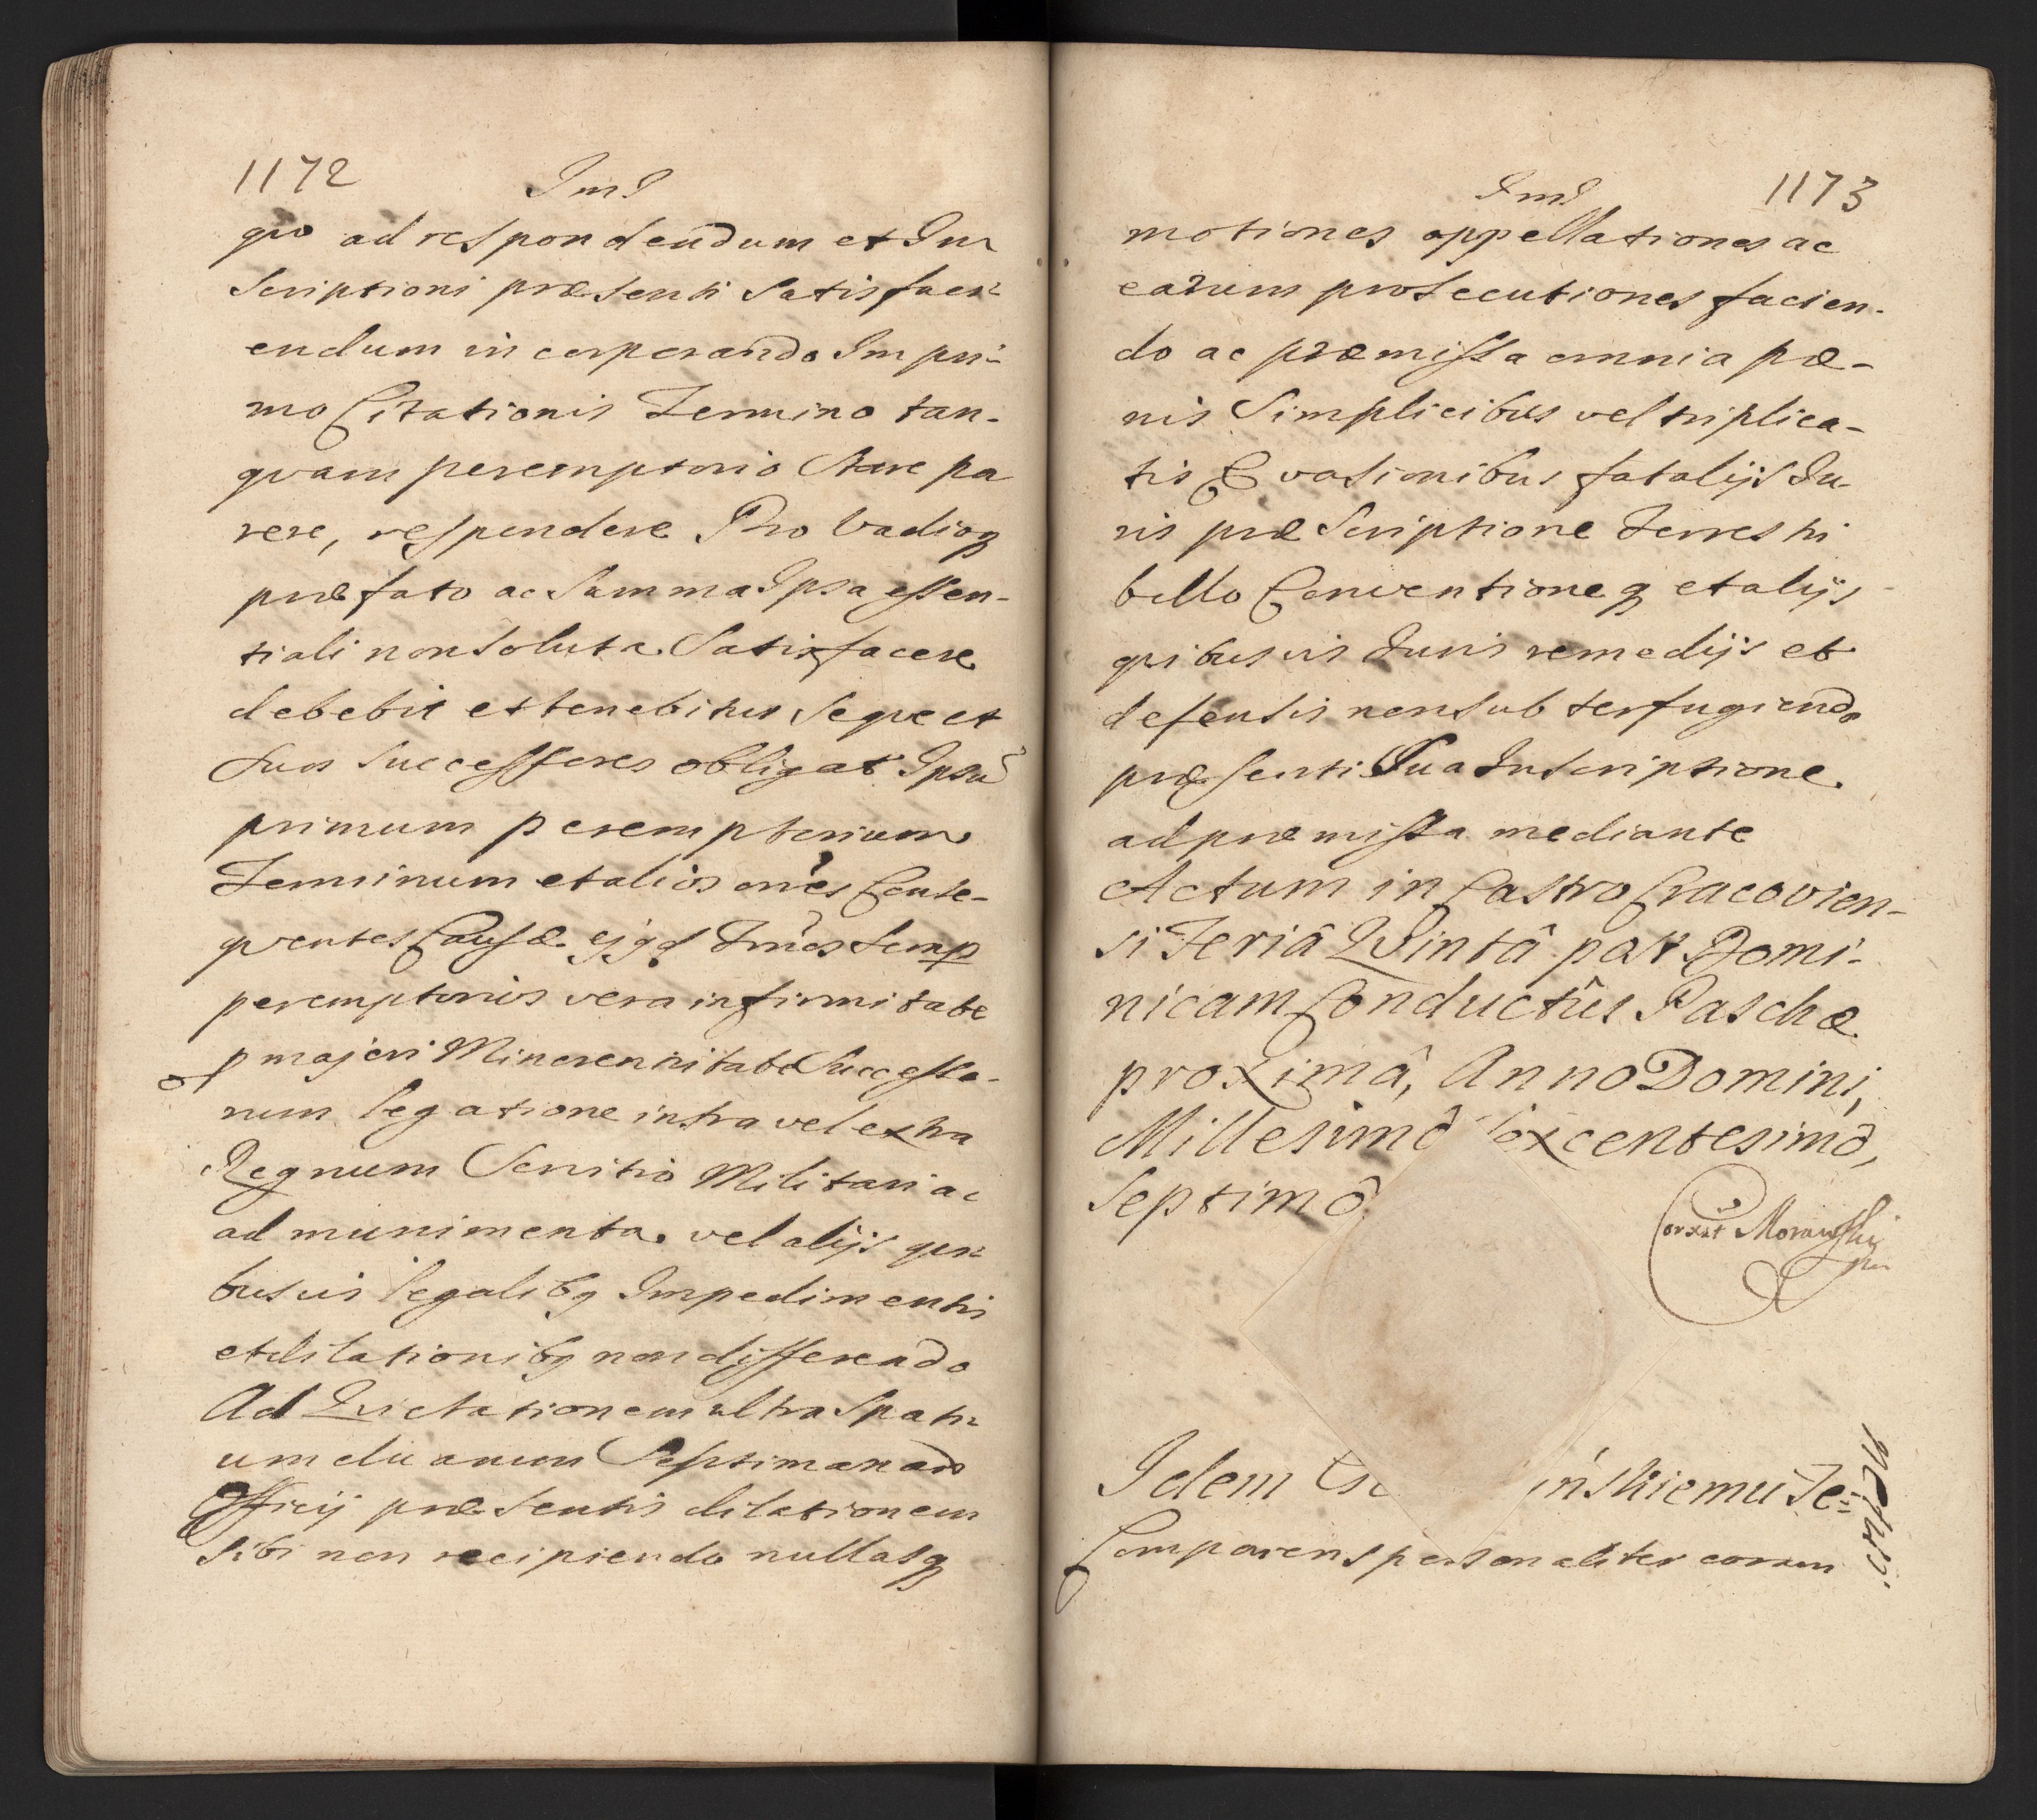 1172
quo ad respondendum et In
Scriptioni præsenti Satisfaci
endum in corporando Impri-
mo Citationis Termino tan-
qvam peremptorio Stare pa
rere, respondere Pro Vadioq
præfato ac Summa Ipsa essen-
tiali non Soluta Satisfacere
debebit et tenebitur Seqve et
Suos Successores obligat Ipsu
primum peremptorium
Terminum et alios oñes Conse-
qventes Causæ Tmños Semp
peremptorios vera infirmitate
p majori Minorennitate Successo-
rum legatione intra vel extra
Regnum Servitio Militari ac
ad munimenta vel alijs qui
busvis legalibq Impedimentis
et dilationibq non differendo
Ad Qvietationem ultra Spati
um duarum Septimanarũ
Officij præsentis dilationem
Sibi non recipiendo nullasq
1173
motiones appellationes ac
earum prosecutiones facien-
do ac præmissa omnia pæ-
nis Simplicibus vel triplica-
tis Evasionibus fatalijs Iu-
ris præScriptione Terrestri
bello Conventioneq et alijs
quibusvis Iuris remedijs et
defensis non Subterfugiendo
præsenti Sua Inscriptione
ad præmissa mediante
Actum in Castro Cracovien-
si Feriâ Qvintâ post Domi-
nicam Conductûs Paschæ
proximâ, Anno Domini,
Millesimô Sexcentesimô,
Septimô.
Corxat Morawski
Idem ińskiemu Te-
Comparens personaliter coram